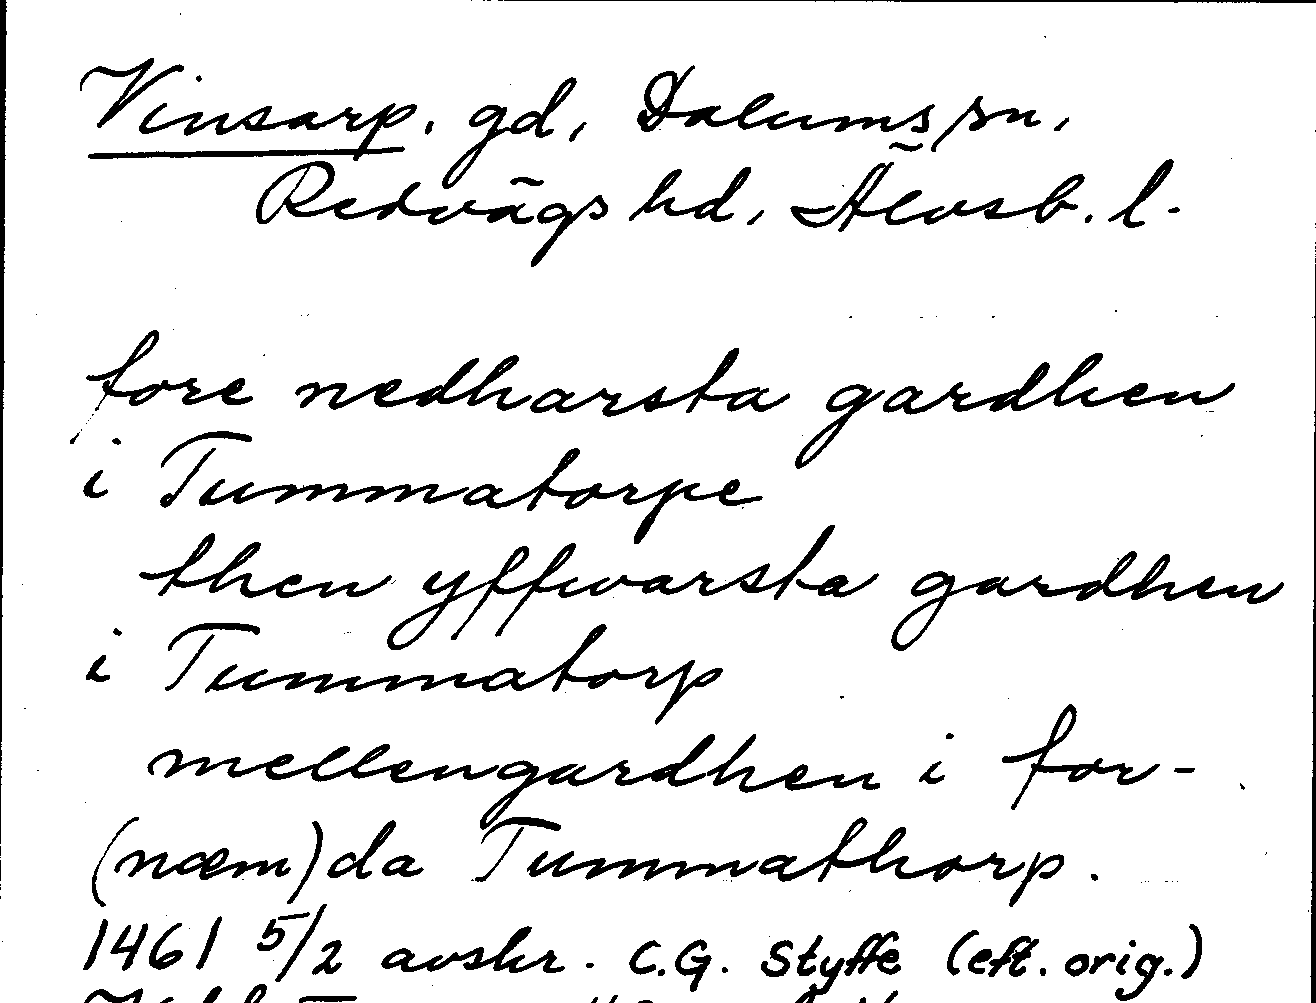 Vinsarp, gd, Dalums sn,
Redvägs hd, Älvsb. l.
fore nedharsta gardhen
i Tummatorpe
then yffwarsta gardhen
i Tummatorp
mellengardhen i for-
(næm)da Tummathorp.
1461 5/2 avskr. C.G. Styffe (eft. orig.)